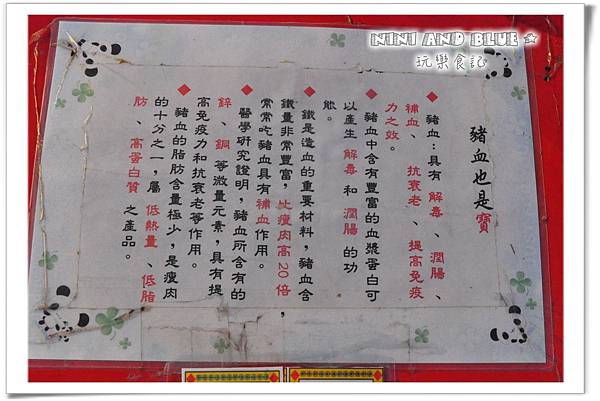 NINI AND BLUE
玩樂食記
豬血也是寶
◆豬血:具有 解毒、潤腸、
補血、抗衰老、提高免疫
力之效。
◆豬血中含有豐富的血漿蛋白可
以產生 解毒 和 潤腸 的功
能。
◆鐵是造血的重要材料,豬血含
鐵量非常豐富,比瘦肉高20倍
常常吃豬血具有補血作用。
◆醫學研究證明,豬血所含有的
鋅、銅 等微量元素,具有提
高免疫力和抗衰老等作用。
◆豬血的脂肪含量極少,是瘦肉
的十分之一,屬 低熱量、低脂
肪、高蛋白質 之產品。